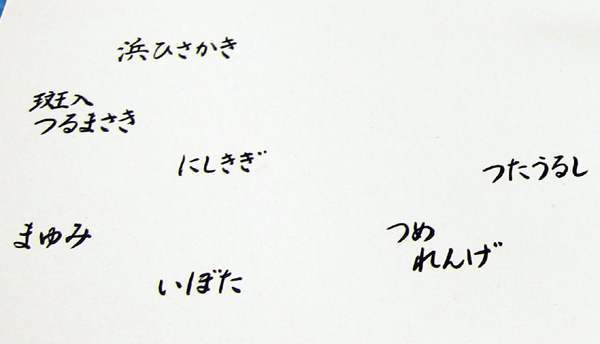 浜ひさかき
斑入
つるまさき
にしきぎ
つたうるし
まゆみ
つめ
れんげ
いぼた